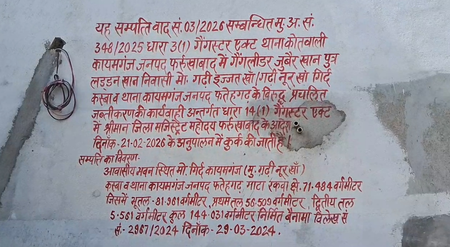 यह सम्पति वाद सं. 03/2026 सम्बन्धित मु. अ. सं.
348/2025 धारा 3(1) गैंगस्टर एक्ट थाना कोतवाली
कायमगंज जनपद फर्रुखाबाद में गैंगलीडर जुबैर खान पुत्र
लड्डन खान निवासी मो. गढ़ी इज्जत खाँ/गढ़ी नूर खाँ गिर्द
कस्बा व थाना कायमगंज जनपद फतेहगढ़ के विरूद्ध प्रचलित
जब्तीकरण की कार्यवाही अन्तर्गत धारा 14(1) गैंगस्टर एक्ट
में श्रीमान जिला मजिस्ट्रेट महोदय फर्रुखाबाद के आदेश
दिनांक-21-02-2026 के अनुपालन में कुर्क की जाती है
सम्पति का विवरण:
आवासीय भवन स्थित मो. गिर्द कायमगंज (मु. गढ़ी नूर खाँ)
कस्बा व थाना कायमगंज जनपद फतेहगढ़ गाटा रकबई क्षे. 71.484 वर्गमीटर
जिसमें भूतल-81.961 वर्गमीटर, प्रथम तल 56.509 वर्गमीटर, द्वितीय तल
5-561 वर्गमीटर कुल 144-031 वर्गमीटर निर्मित बैनामा विलेख सं
सं.-2867/2024 दिनांक-29-03-2024.